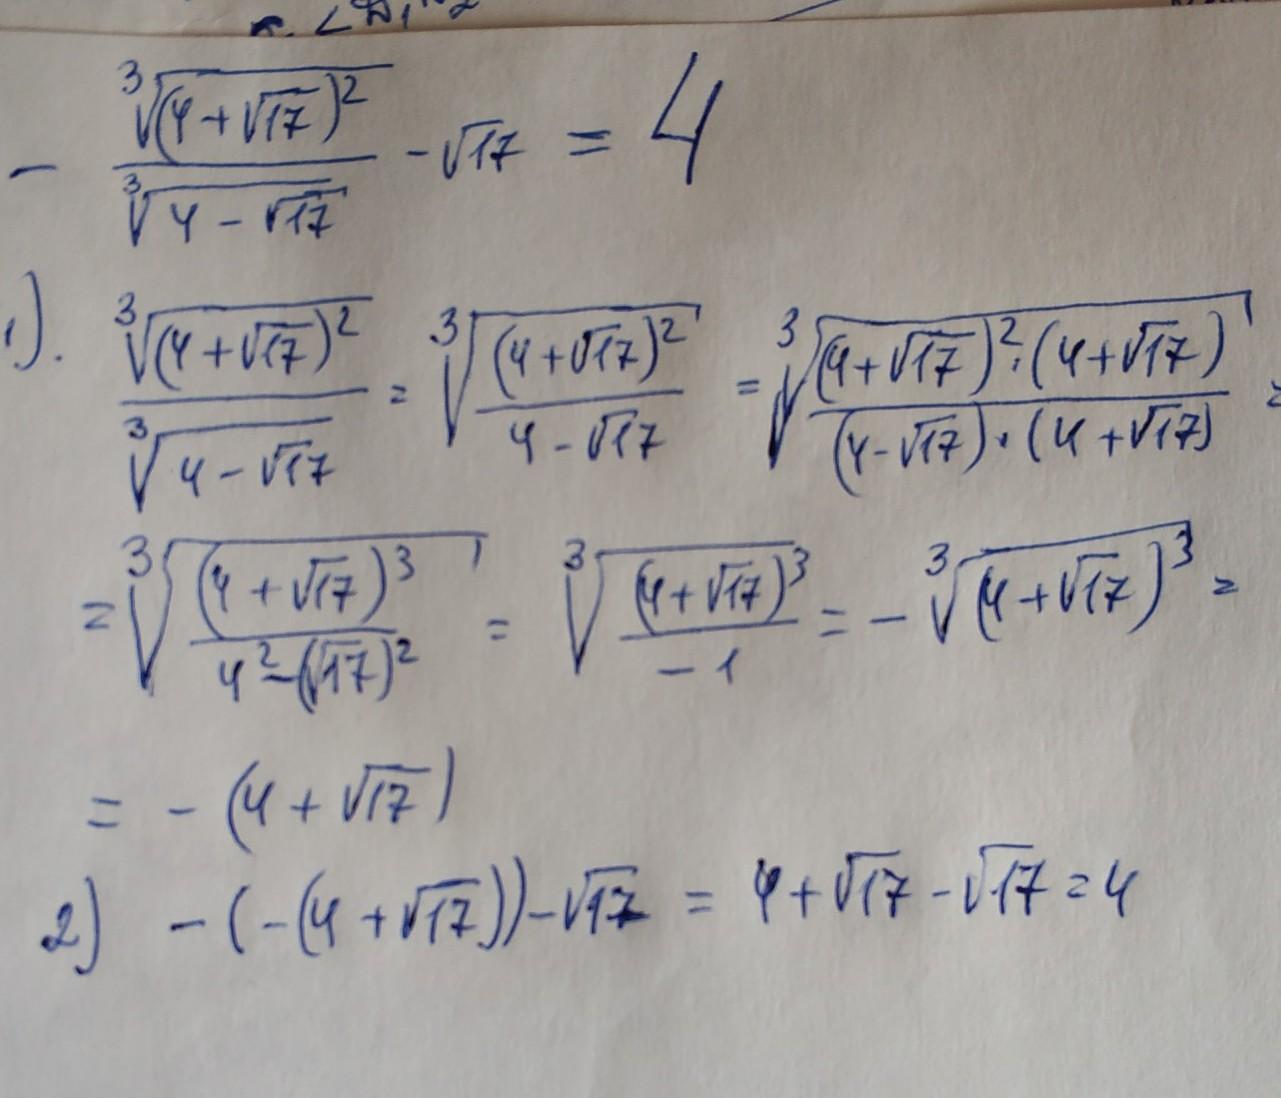 - ∛(4+√17)² / ∛4-√17 - √17 = 4
1). ∛(4+√17)² / ∛4-√17 = ∛((4+√17)² / 4-√17) = ∛((4+√17)²·(4+√17) / (4-√17)·(4+√17)) =
= ∛((4+√17)³ / 4²-(√17)²) = ∛((4+√17)³ / -1) = - ∛(4+√17)³ =
= - (4+√17)
2) - (-(4+√17)) - √17 = 4+√17 - √17 = 4